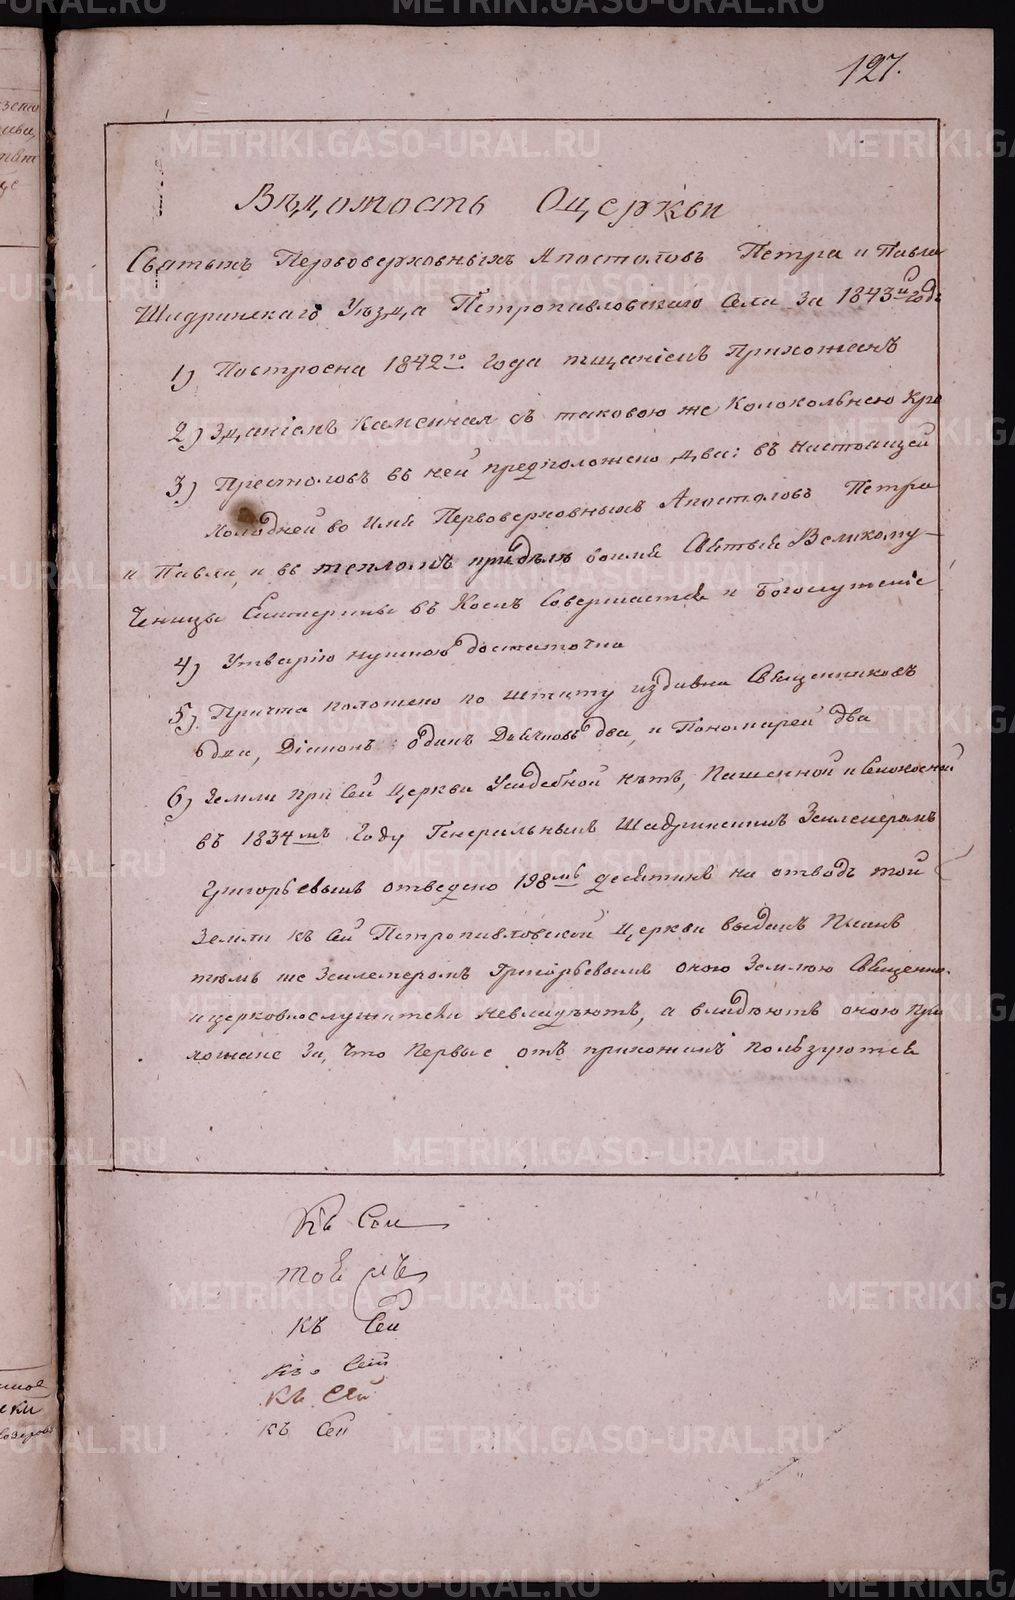 127.
Вѣдомость Оцеркви
Святыхъ Первоверховныхъ Апостоловъ Петра и Павла
Шадринскаго Уѣзда Петропавловскаго Села За 1843й годъ
1) Построена 1842го года тщаніемъ Прихожанъ
2) Зданіемъ Каменная съ таковою же Колокольнею
3) Престоловъ въ ней предположено два: въ настоящей
Холодней во Имя Первоверховныхъ Апостоловъ Петра
и Павла, и въ тепломъ придѣлѣ воимя Святыя Великому-
Ченицы Екатерины въ Коемъ Совершается и Богослуженіе
4) Утварію нужною достаточна
5) Причта положено по штату издавна Священниковъ
два, Діаконъ одинъ Дьячковъ два, и Пономарей два
6) Земли При Сей Церкви Усадебной нѣтъ, Пашенной и Сенокосной
въ 1834мъ Году Генеральнымъ Шадринскимъ Землемеромъ
Григорьевымъ отведено 198мь десятинъ на отводъ той
Земли къ Сей Петропавловской Церкви выданъ Планъ
тѣмъ же Землемеромъ Григорьевымъ оною Землею Священно-
ицерковнослужители невладѣютъ, а владѣютъ оною При
хожане За, что Первые отъ прихожанъ пользуются
Къ Сей
къ Сей
къ Сей
къ Сей
къ Сей
METRIKI.GASO-URAL.RU